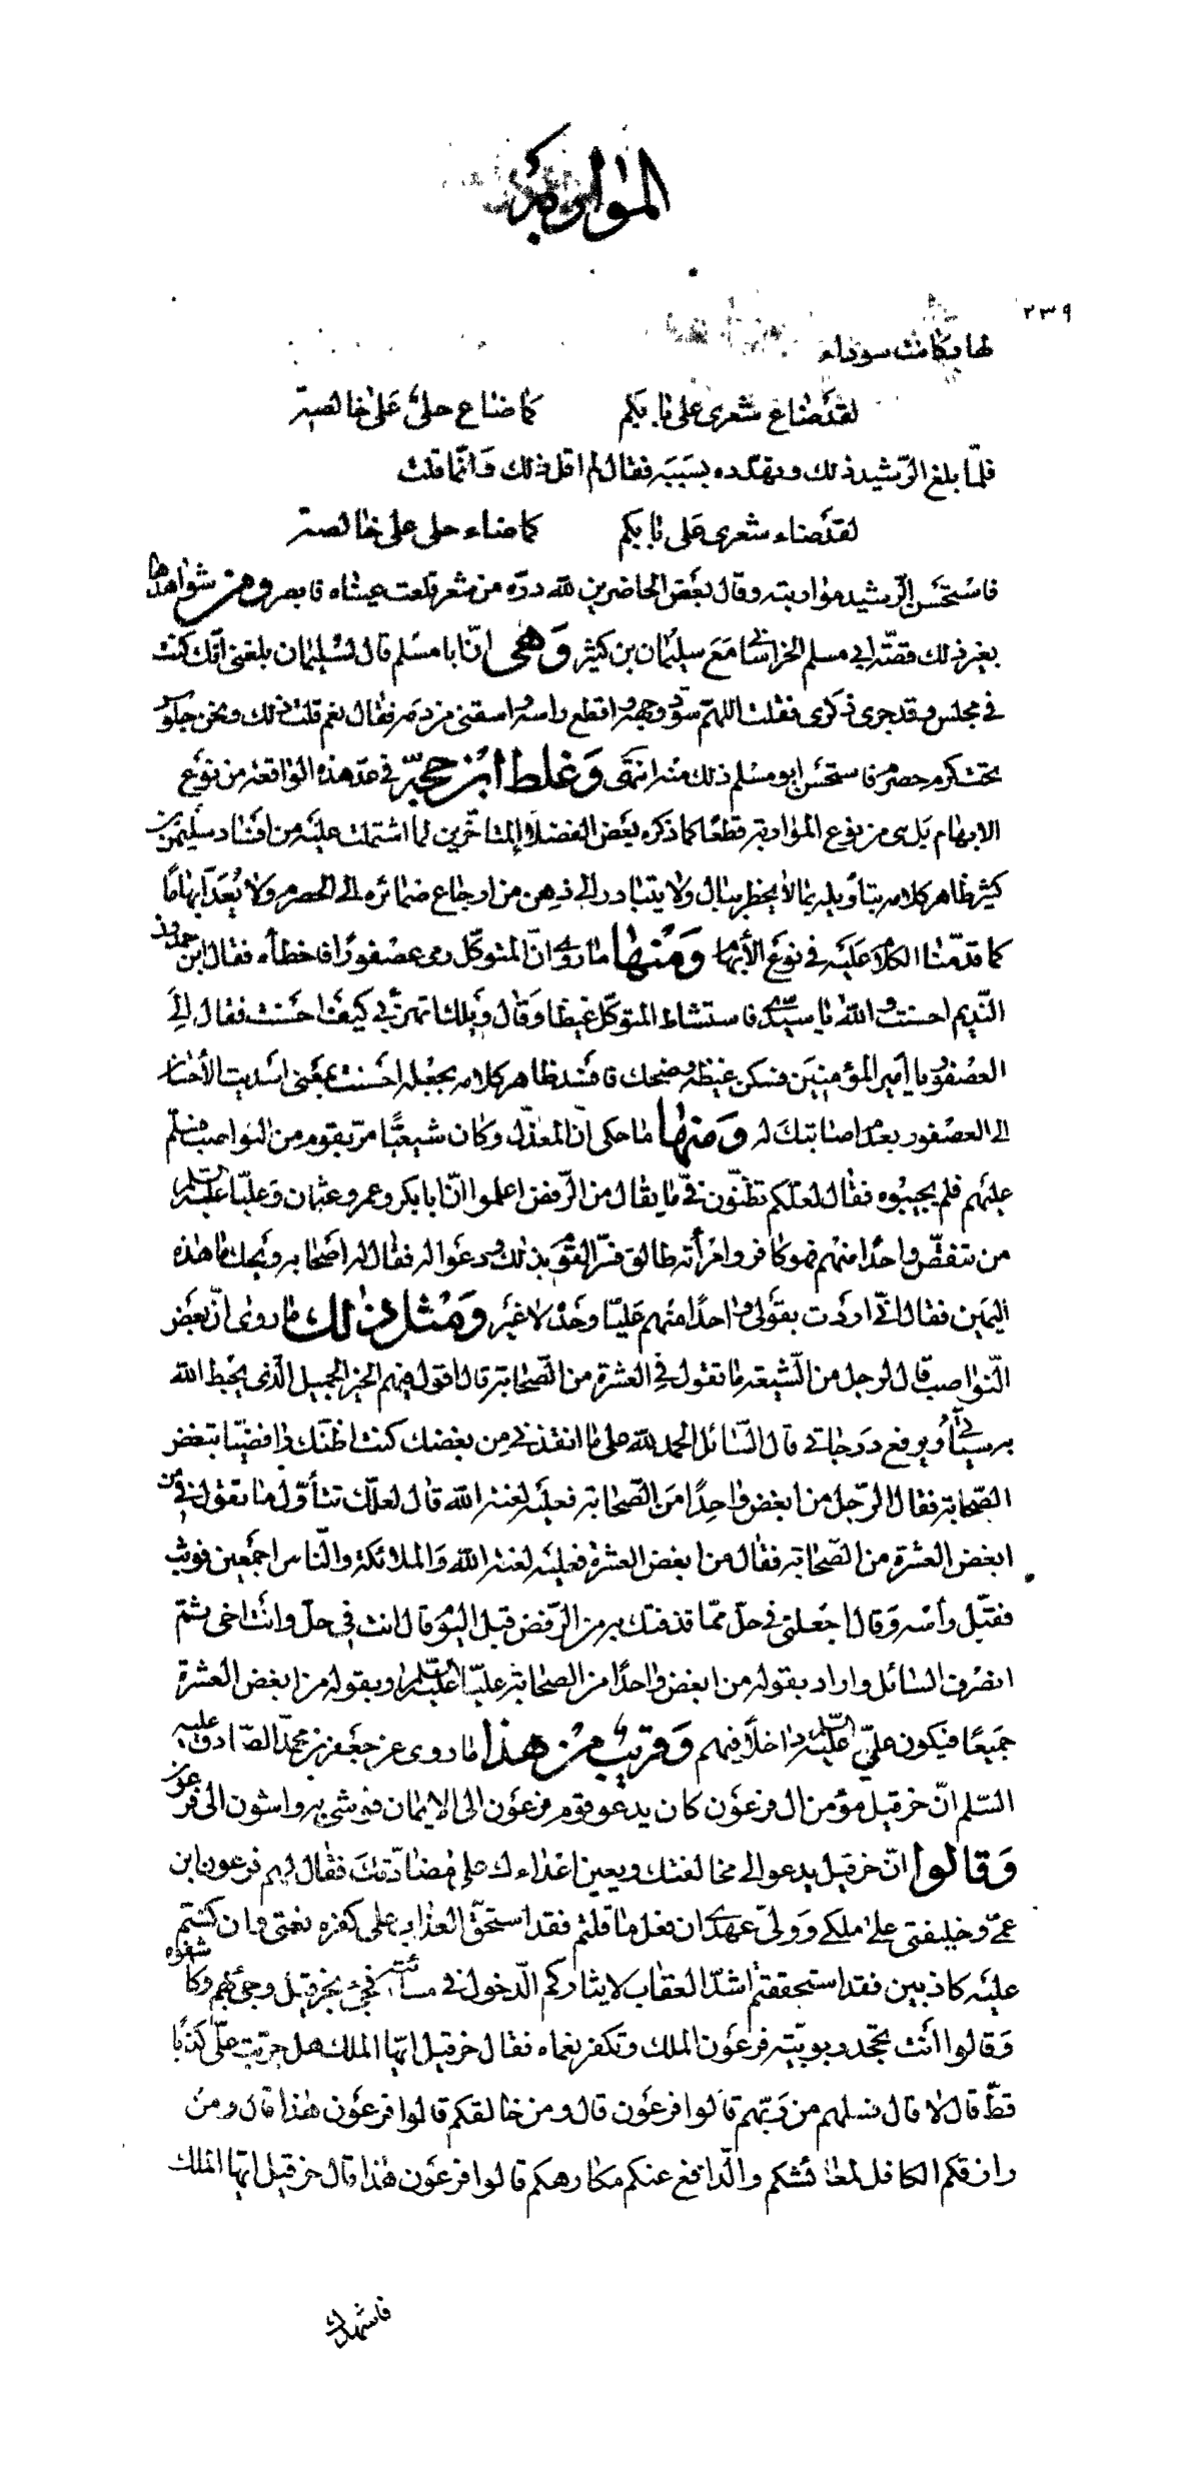 المواربة
٢٣٩
لها وكانت سوداء
لقد ضاع شعرى على بابكم كما ضاع حلى على خالصة
فلمّا بلغ الرّشيد ذلك وتهدّده بسببه فقال لم اقل ذلك وانّما قلت
لقد ضاء شعرى على بابكم كما ضاء حلى على خالصة
فاستحسن الرّشيد مواربته وقال بعض الحاضرين لله درّه من شعر قلعت عيناه فابصر ومن شواهدها
بغير ذلك قصّة ابى مسلم الخراسانى مع سليمان بن كثير وهى انّ ابا مسلم قال لسليمان بلغنى انّك كنت
فى مجلس وقد جرى ذكرى فقلت اللهمّ سوّد وجهه واقطع راسه واسقنى من دمه فقال نعم قلت ذلك ونحن جلوس
تحت كرم حصرم فاستحسن ابو مسلم ذلك منه انتهى وغلط ابن حجّة فى عدّ هذه الواقعة من نوع
الابهام بل هى من نوع المواربة قطعًا كما ذكره بعض الفضلاء المتاخّرين لما اشتملت عليه من افساد سليمن بن
كثير ظاهر كلامه بتأويله بما لا يخطر ببال ولا يتبادر الى ذهن من ارجاع ضمائره الى الحصرم ولا يُعَدّ ابهامًا
كما قدّمنا الكلام عليه فى نوع الأبهام ومنها ما روى انّ المتوكّل رمى عصفورًا فاخطأه فقال ابن حمدون
النّديم احسنت والله يا سيّدى فاستشاط المتوكّل غيظا وقال ويلك اتهزأ بى كيف احسنت فقال الى
العصفور يا أمير المؤمنين فسكن غيظه وضحك فافسد ظاهر كلامه بجعله احسنت بمعنى اسديت الأحسان
الى العصفور بعدم اصابتك له ومنها ما حكى انّ المعذّل وكان شيعيًّا مرّ بقوم من النواصب فسلّم
عليهم فلم يجيبوه فقال لعلّكم تظنّون فىّ ما يقال من الرّفض اعلموا انّ ابا بكر وعمر وعثمان وعليّا عليه السلم
من تنقّص واحدًا منهم فهو كافر وامرأته طالق فسرّ القوم بذلك ودعوا له فقال له اصحابه ويحك ما هذه
اليمين فقال انّى اردت بقولى واحدًا منهم عليّا وحده لا غير ومثل ذلك ما روى انّ بعض
النّواصب قال لرجل من الشّيعة ما تقول فى العشرة من الصّحابة قال اقول فيهم الخير الجميل الّذى يحبط الله
به سيّئاتى ويرفع درجاتى قال السّائل الحمد لله على ما انقذنى من بغضك كنت اظنّك رافضيّا تبغض
الصّحابة فقال الرّجل من ابغض واحدًا من الصّحابة فعليه لعنة الله قال لعلّك تتأوّل ما تقول فى من
ابغض العشرة من الصّحابة فقال من ابغض العشرة فعليه لعنة الله والملائكة والنّاس اجمعين فوثب
فقبّل رأسه وقال اجعلنى فى حلّ ممّا قذفتك به من الرّفض قبل اليوم قال انت فى حلّ وانت اخى ثمّ
انصرف السّائل واراد بقوله من ابغض واحدًا من الصّحابة عليّا عليه السلم وبقوله من ابغض العشرة
جميعًا فيكون علىّ عليه السلم داخلًا فيهم وقريب من هذا ما روى عن جعفر بن محمّد الصّادق عليه
السّلم انّ خرقيل مؤمن ال فرعون كان يدعو قوم فرعون الى الايمان فوشى به واشون الى فرعون
وقالوا انّ خرقيل يدعو الى مخالفتك ويعين اعداءك على مضادّتك فقال لهم فرعون ابن
عمّى وخليفتى على ملكى وولىّ عهدى ان فعل ما قلتم فقد استحقّ العذاب على كفره نعمتى وان كنتم
عليه كاذبين فقد استحققتم اشدّ العقاب لايثاركم الدّخول فى مسائته فجئ بخرقيل وجئ بهم وكاشفوه
وقالوا اانت تجحد ربوبيّة فرعون الملك وتكفر نعماه فقال خرقيل ايّها الملك هل جرّبت علىّ كذبًا
قطّ قال لا قال فسلهم من ربّهم قالوا فرعون قال ومن خالقكم قالوا فرعون هذا قال ومن
رازقكم الكافل لمعائشكم والدّافع عنكم مكارهكم قالوا فرعون هذا قال خرقيل ايّها الملك
فاشهدك